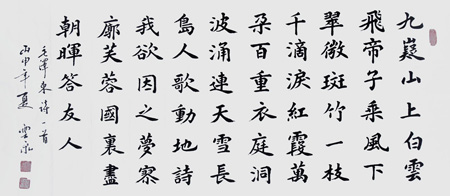 九嶷山上白雲
飛帝子乘風下
翠微斑竹一枝
千滴淚紅霞萬
朵百重衣庭洞
波涌連天雪長
島人歌動地詩
我欲因之夢寥
廓芙蓉國裏盡
朝暉答友人
毛澤東詩一首
丙申年夏